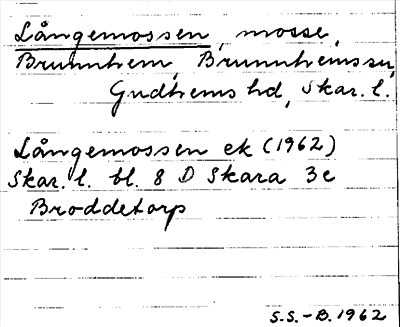 Långemossen, mosse,
Brunnhem, Brunnhems sn,
Gudhems hd, Skar. l.
Långemossen ek (1962)
Skar. l. bl. 8 D Skara 3e
Broddetorp
S.S.-B. 1962